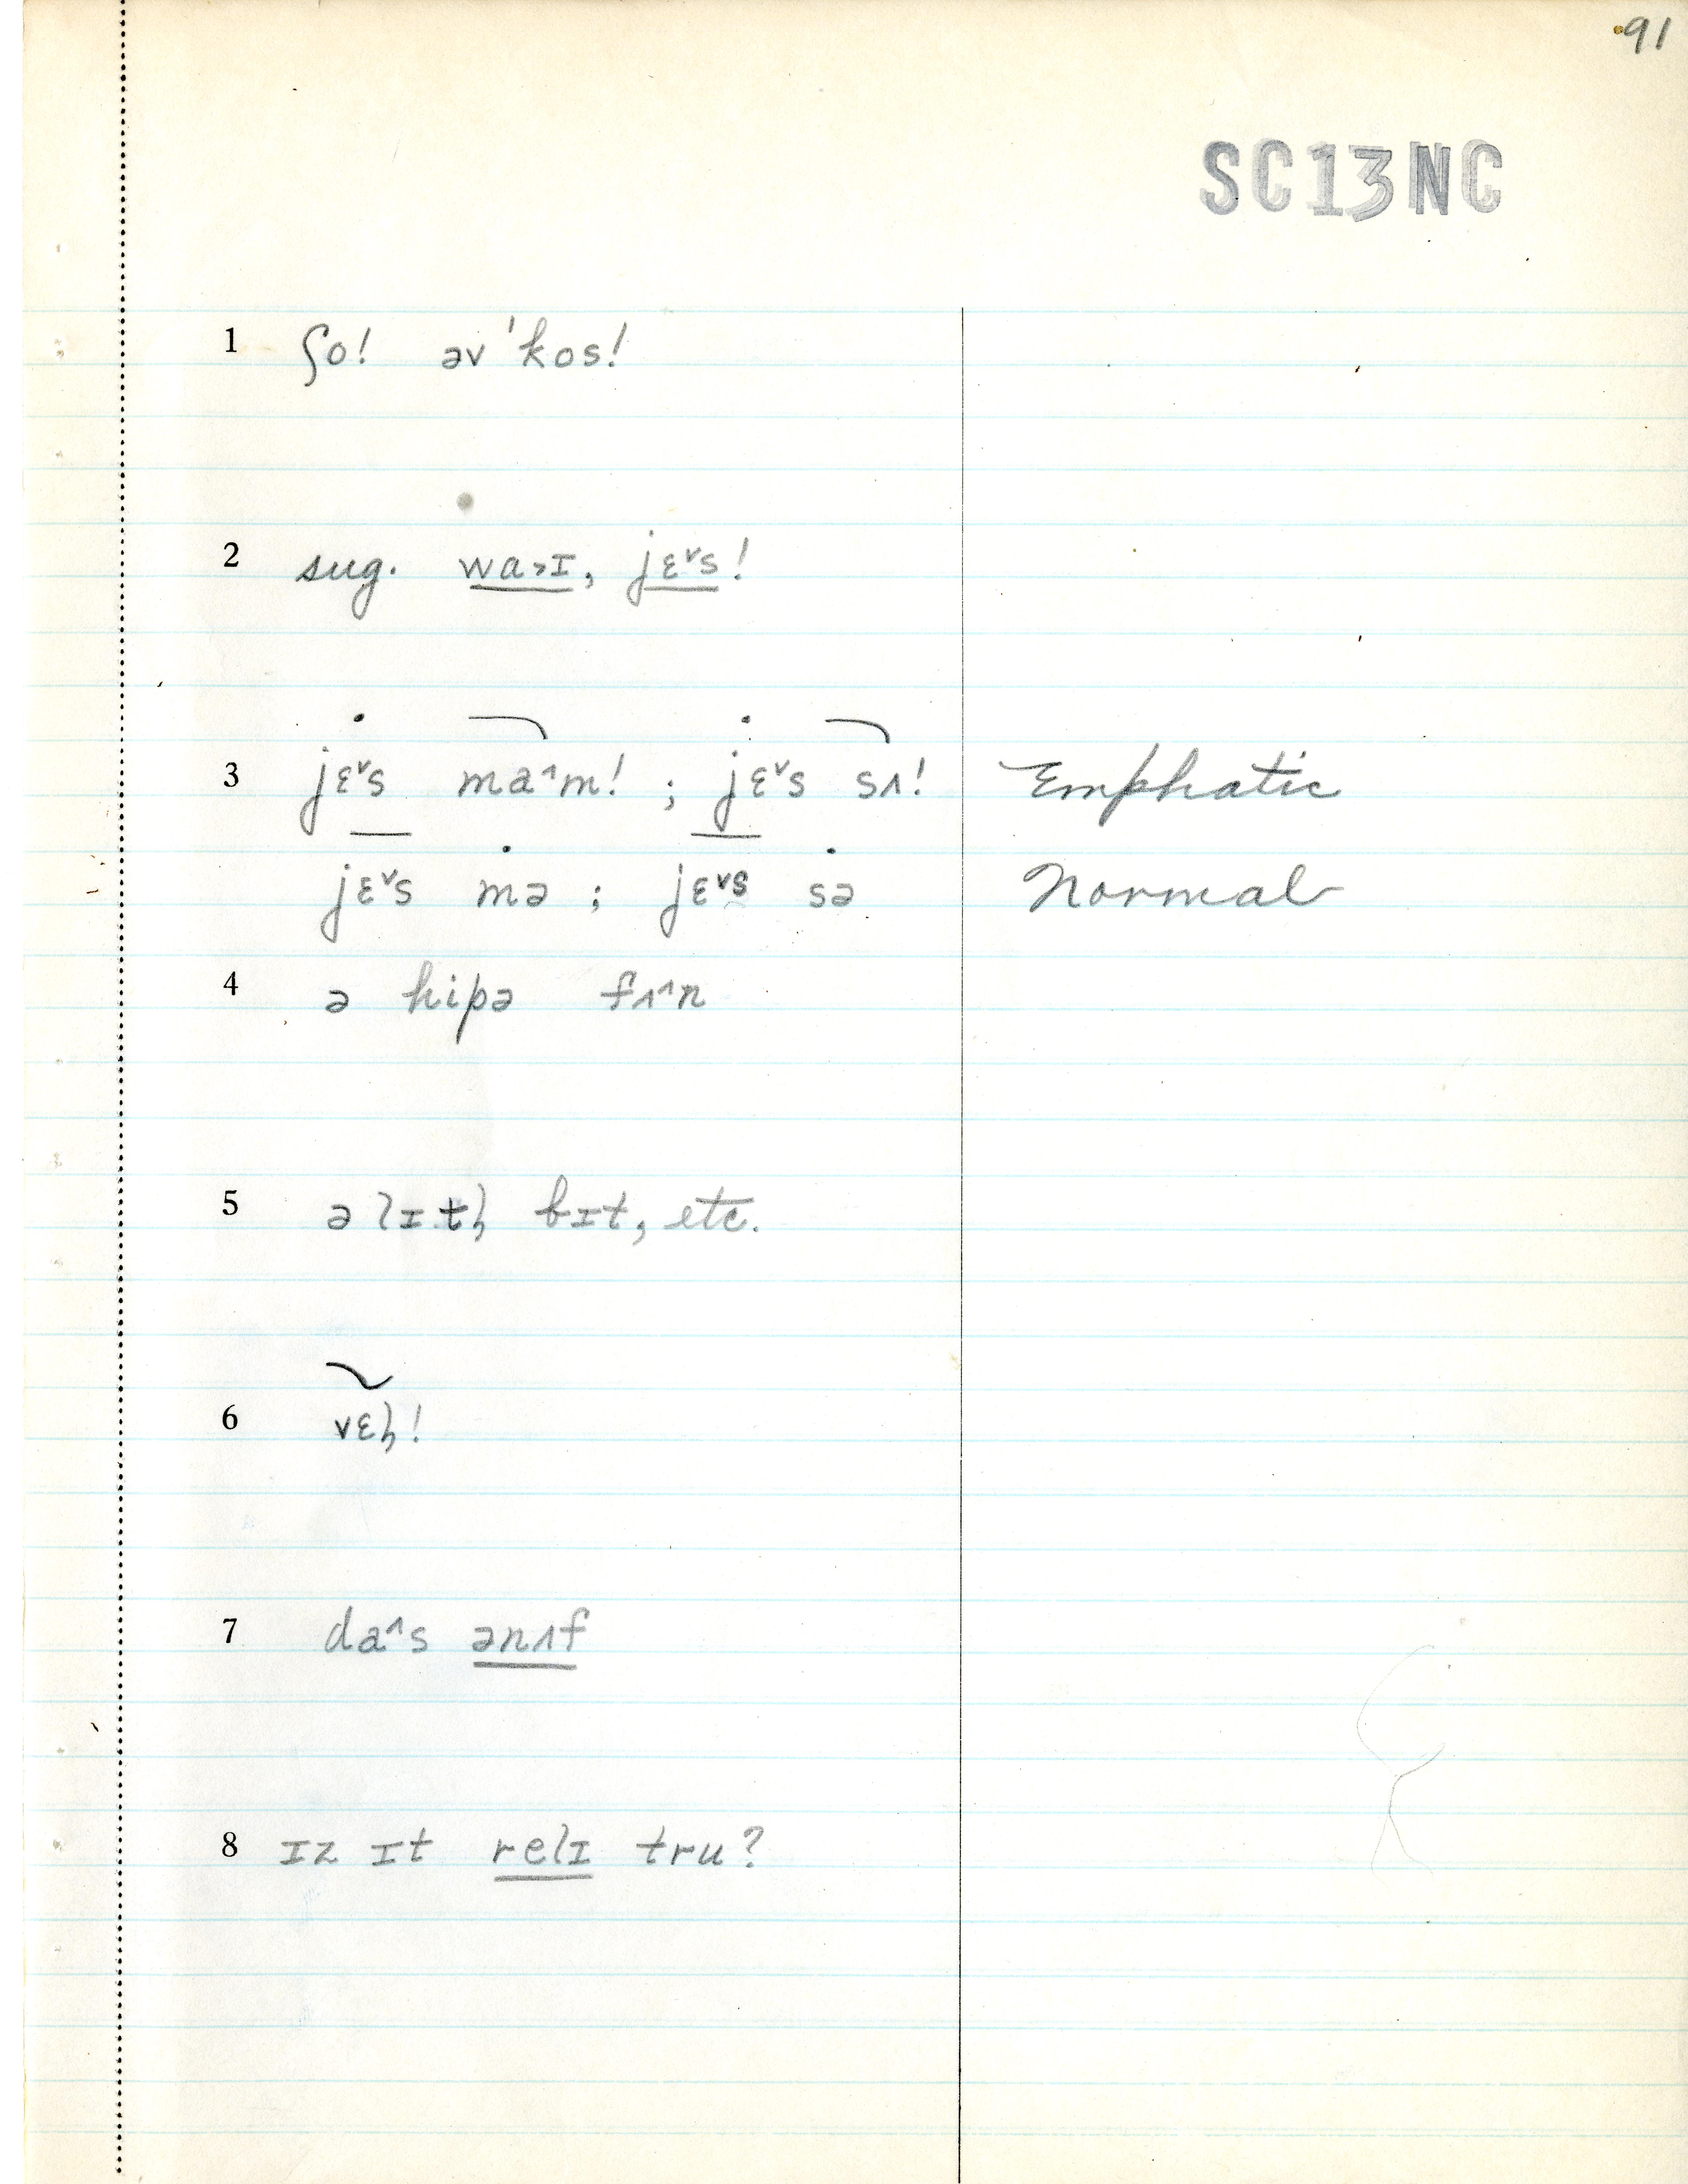 91
SC13NC
1 ʃo! əv ˈkos!
2 sug. wa˃ɪ, jɛᵛs!
3 jɛᵛs ma^m! ; jɛᵛs sʌ! Emphatic
jɛᵛs mə ; jɛᵛs sə Normal
4 ə hipə fʌ^n
5 ə lɪtḷ bɪt, etc.
6 vɛɦ!
7 da^s ənʌf
8 ɪz ɪt relɪ tru?